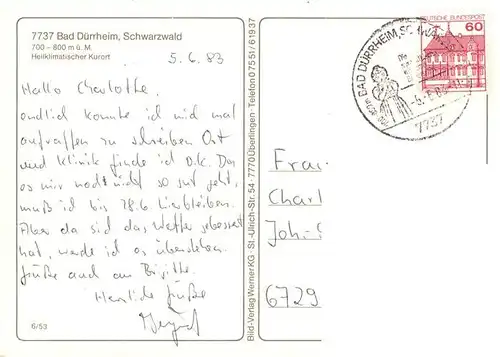 7737 Bad Dürrheim, Schwarzwald
700 – 800 m ü. M.
Heilklimatischer Kurort
5.6.83
Hallo Charlotte,
endlich konnte ich mich mal
aufraffen zu schreiben. Ort
und Klinik finde ich o.k. Da
es mir noch nicht so gut geht,
muß ich bis 28.6. hierbleiben.
Aber da sich das Wetter gebessert
hat, werde ich es überstehen.
Grüße auch an Birgitte.
Herzliche Grüße
6/53
Bild-Verlag Werner KG · St.-Ulrich-Str. 54 · 7770 Überlingen · Telefon 07551/61937
DEUTSCHE BUNDESPOST
60
BAD DÜRRHEIM, SCHWARZW
7737
Frau
Charl
Joh.-S
6729